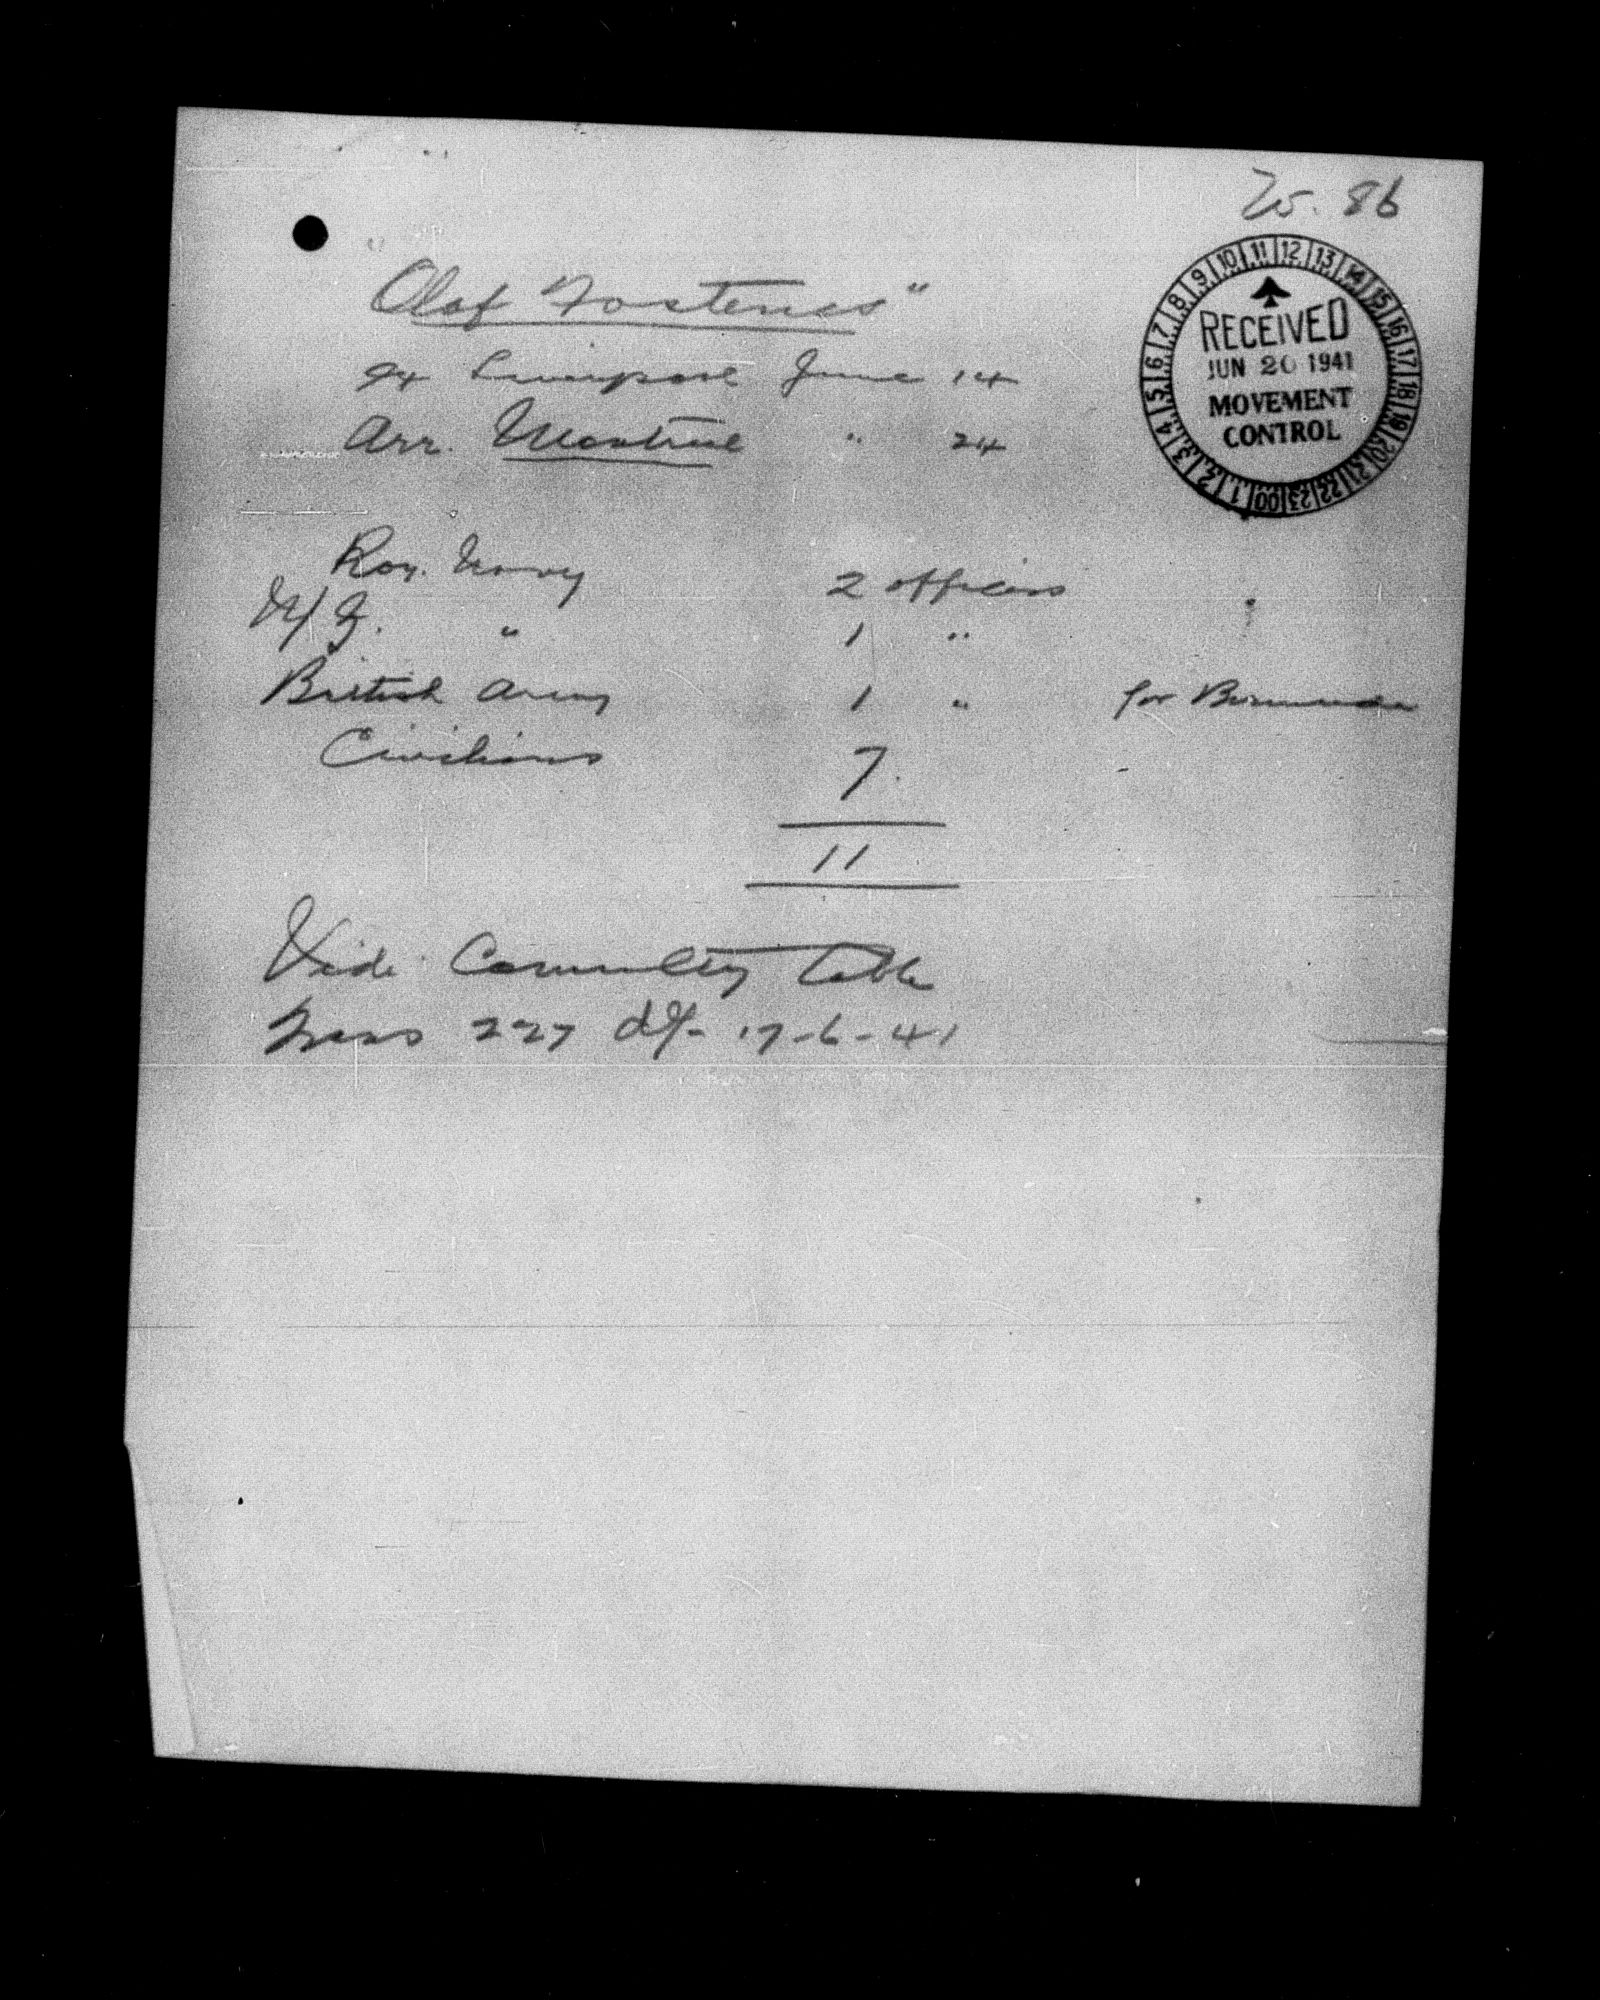 25. 86
"Olaf Fostenes"
ex Liverpool June 14
Arr. Montreal " 24
10 11 12 13 14 15 16 17 18 19 20 21 22 23 00 1 2 3 4 5 6 7 8 9
RECEIVED
JUN 20 1941
MOVEMENT
CONTROL
Roy. Navy 2 officers
N/Z. " 1 "
British Army 1 " for Bermuda
Civilians 7.
11
Vide Comulty Cable
227 d/- 17-6-41